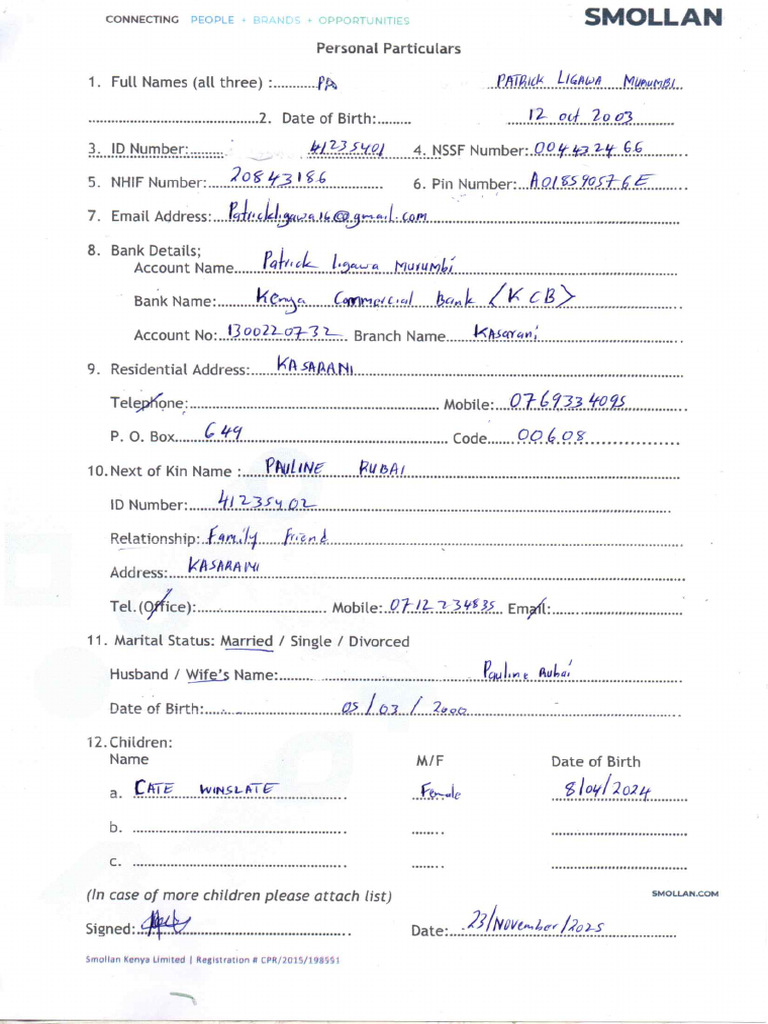 CONNECTING PEOPLE • BRANDS • OPPORTUNITIES SMOLLAN
Personal Particulars
1. Full Names (all three) :........... PA PATRICK LIGAWA MURUMBI
2. Date of Birth:......... 12 Oct 2003
3. ID Number: 41235401 4. NSSF Number: 004432466
5. NHIF Number: 20843186 6. Pin Number: A018590576E
7. Email Address: Patrickligawa16@gmail.com
8. Bank Details;
Account Name Patrick ligawa Murumbi
Bank Name: Kenya Commercial Bank (KCB)
Account No: 1300220732 Branch Name Kasarani
9. Residential Address: KASARANI
Telephone: Mobile: 0769334095
P. O. Box 649 Code 00608
10. Next of Kin Name : PAULINE RUBAI
ID Number: 41235402
Relationship: Family friend
Address: KASARANI
Tel. (Office): Mobile: 0712234835 Email:
11. Marital Status: Married / Single / Divorced
Husband / Wife's Name: Pauline Rubai
Date of Birth: 05/03/2000
12. Children:
Name M/F Date of Birth
a. CATE WINSLATE Female 8/04/2024
b.
c.
(In case of more children please attach list) SMOLLAN.COM
Signed: Date: 23/November/2025
Smollan Kenya Limited | Registration # CPR/2015/198551